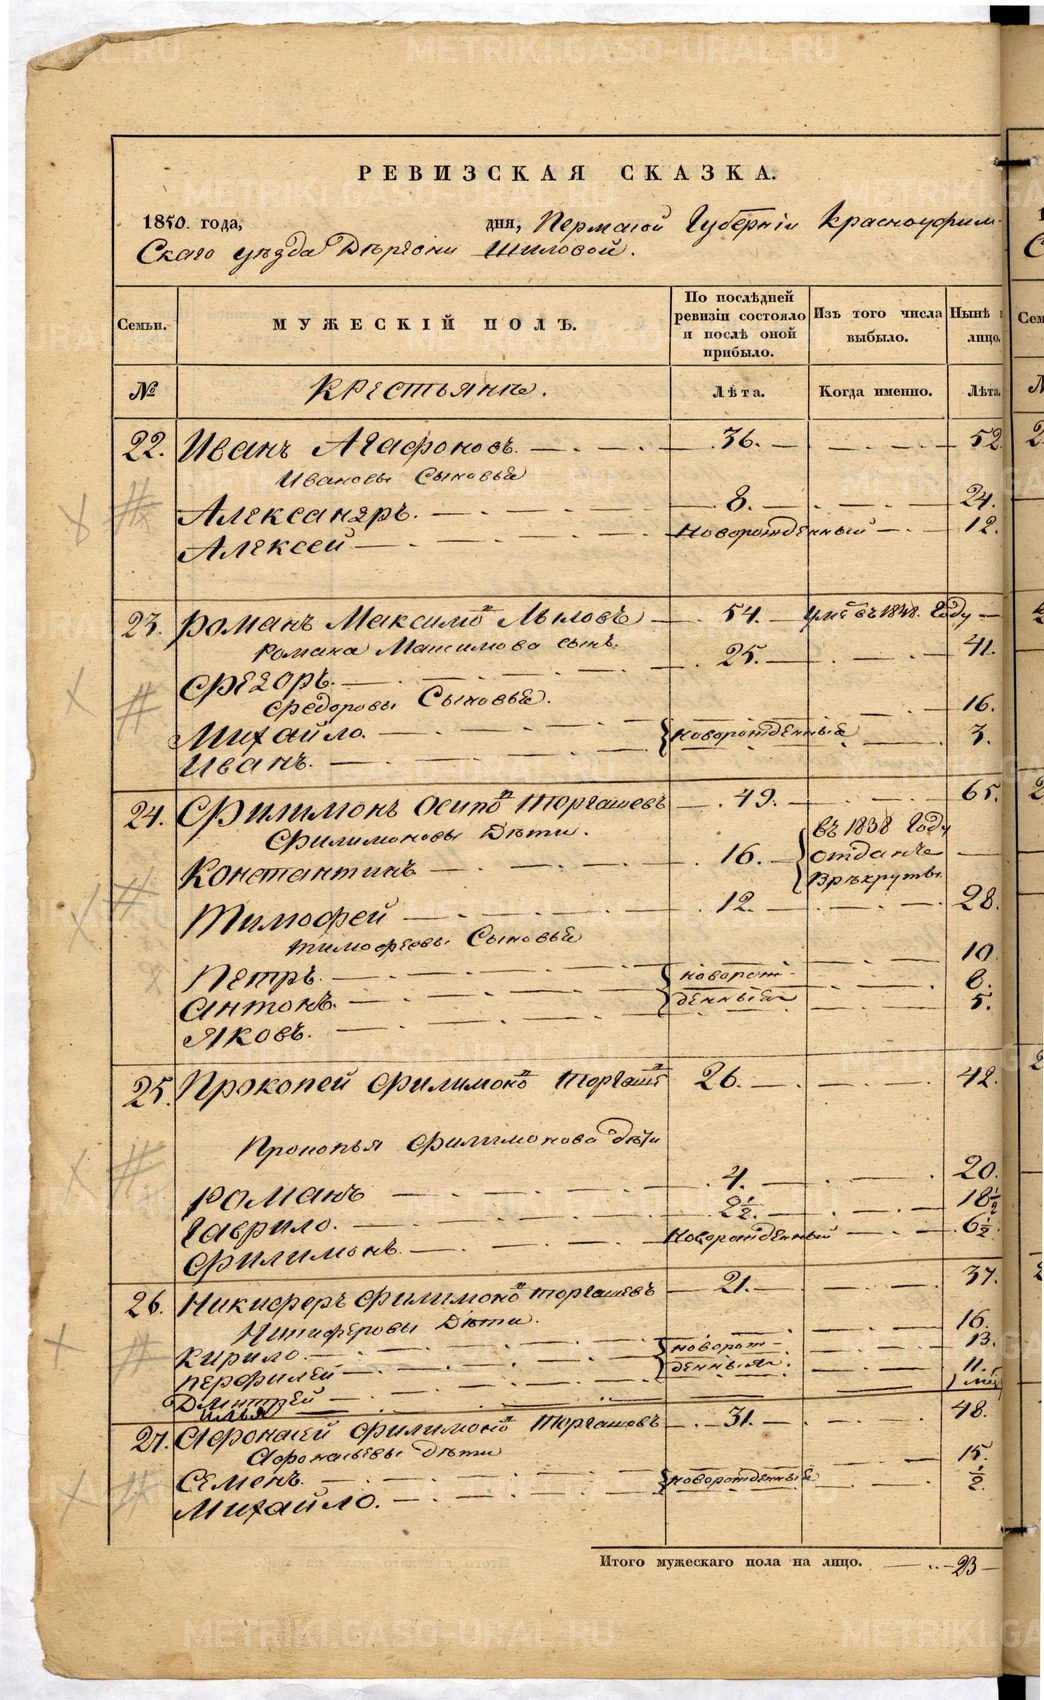 РЕВИЗСКАЯ СКАЗКА.
1850. года, дня, Пермской Губернiи Красноуфим-
Скаго уѣзда Дѣревни Шиловой.
Семьи. МУЖЕСКIЙ ПОЛЪ. По послѣдней ревизiи состояло и послѣ оной прибыло. Изъ того числа выбыло. Нынѣ лицо.
№ Крестьяне. Лѣта. Когда именно. Лѣта.
22. Иванъ Агафоновъ. 36. 52
Ивановы Сыновья
Александръ. 8. 24.
Алексей Новорожденный 12.
23. Романъ Максимов Мыловъ 54. 1848. Году
Романа Максимова сынъ.
Фѣдоръ. 25. 41.
Федоровы Сыновья.
Михайло. новорожденные 16.
Иванъ. 3.
24. Филимонъ Осипов Торгашевъ 49. 65.
Филимоновы Дѣти.
Константинъ 16. въ 1838 Году отданъ в рѣкруты
Тимофей 12. 28.
Тимофеевы Сыновья
Петръ. новорож- 10.
Антонъ. денныя 8.
Яковъ. 5.
25. Прокопей Филимонов Торгаш 26. 42.
Прокопья Филимонова дѣти
Романъ 4. 20.
Гаврило. 2½. 18½
Филимонъ. Новорожденный 6½.
26. Никиферъ Филимонов Торгашевъ 21. 37.
Никиферовы Дѣти.
Кирило новорож- 16.
Перфилей денныя. 13.
Дмитрей 11.
Илья
27. Афонасей Филимонов Торгашовъ 31. 48.
Афонасьевы дѣти
Семенъ. новорожденные 15.
Михайло. ½.
Итого мужескаго пола на лицо. 23
METRIKI.GASO-URAL.RU